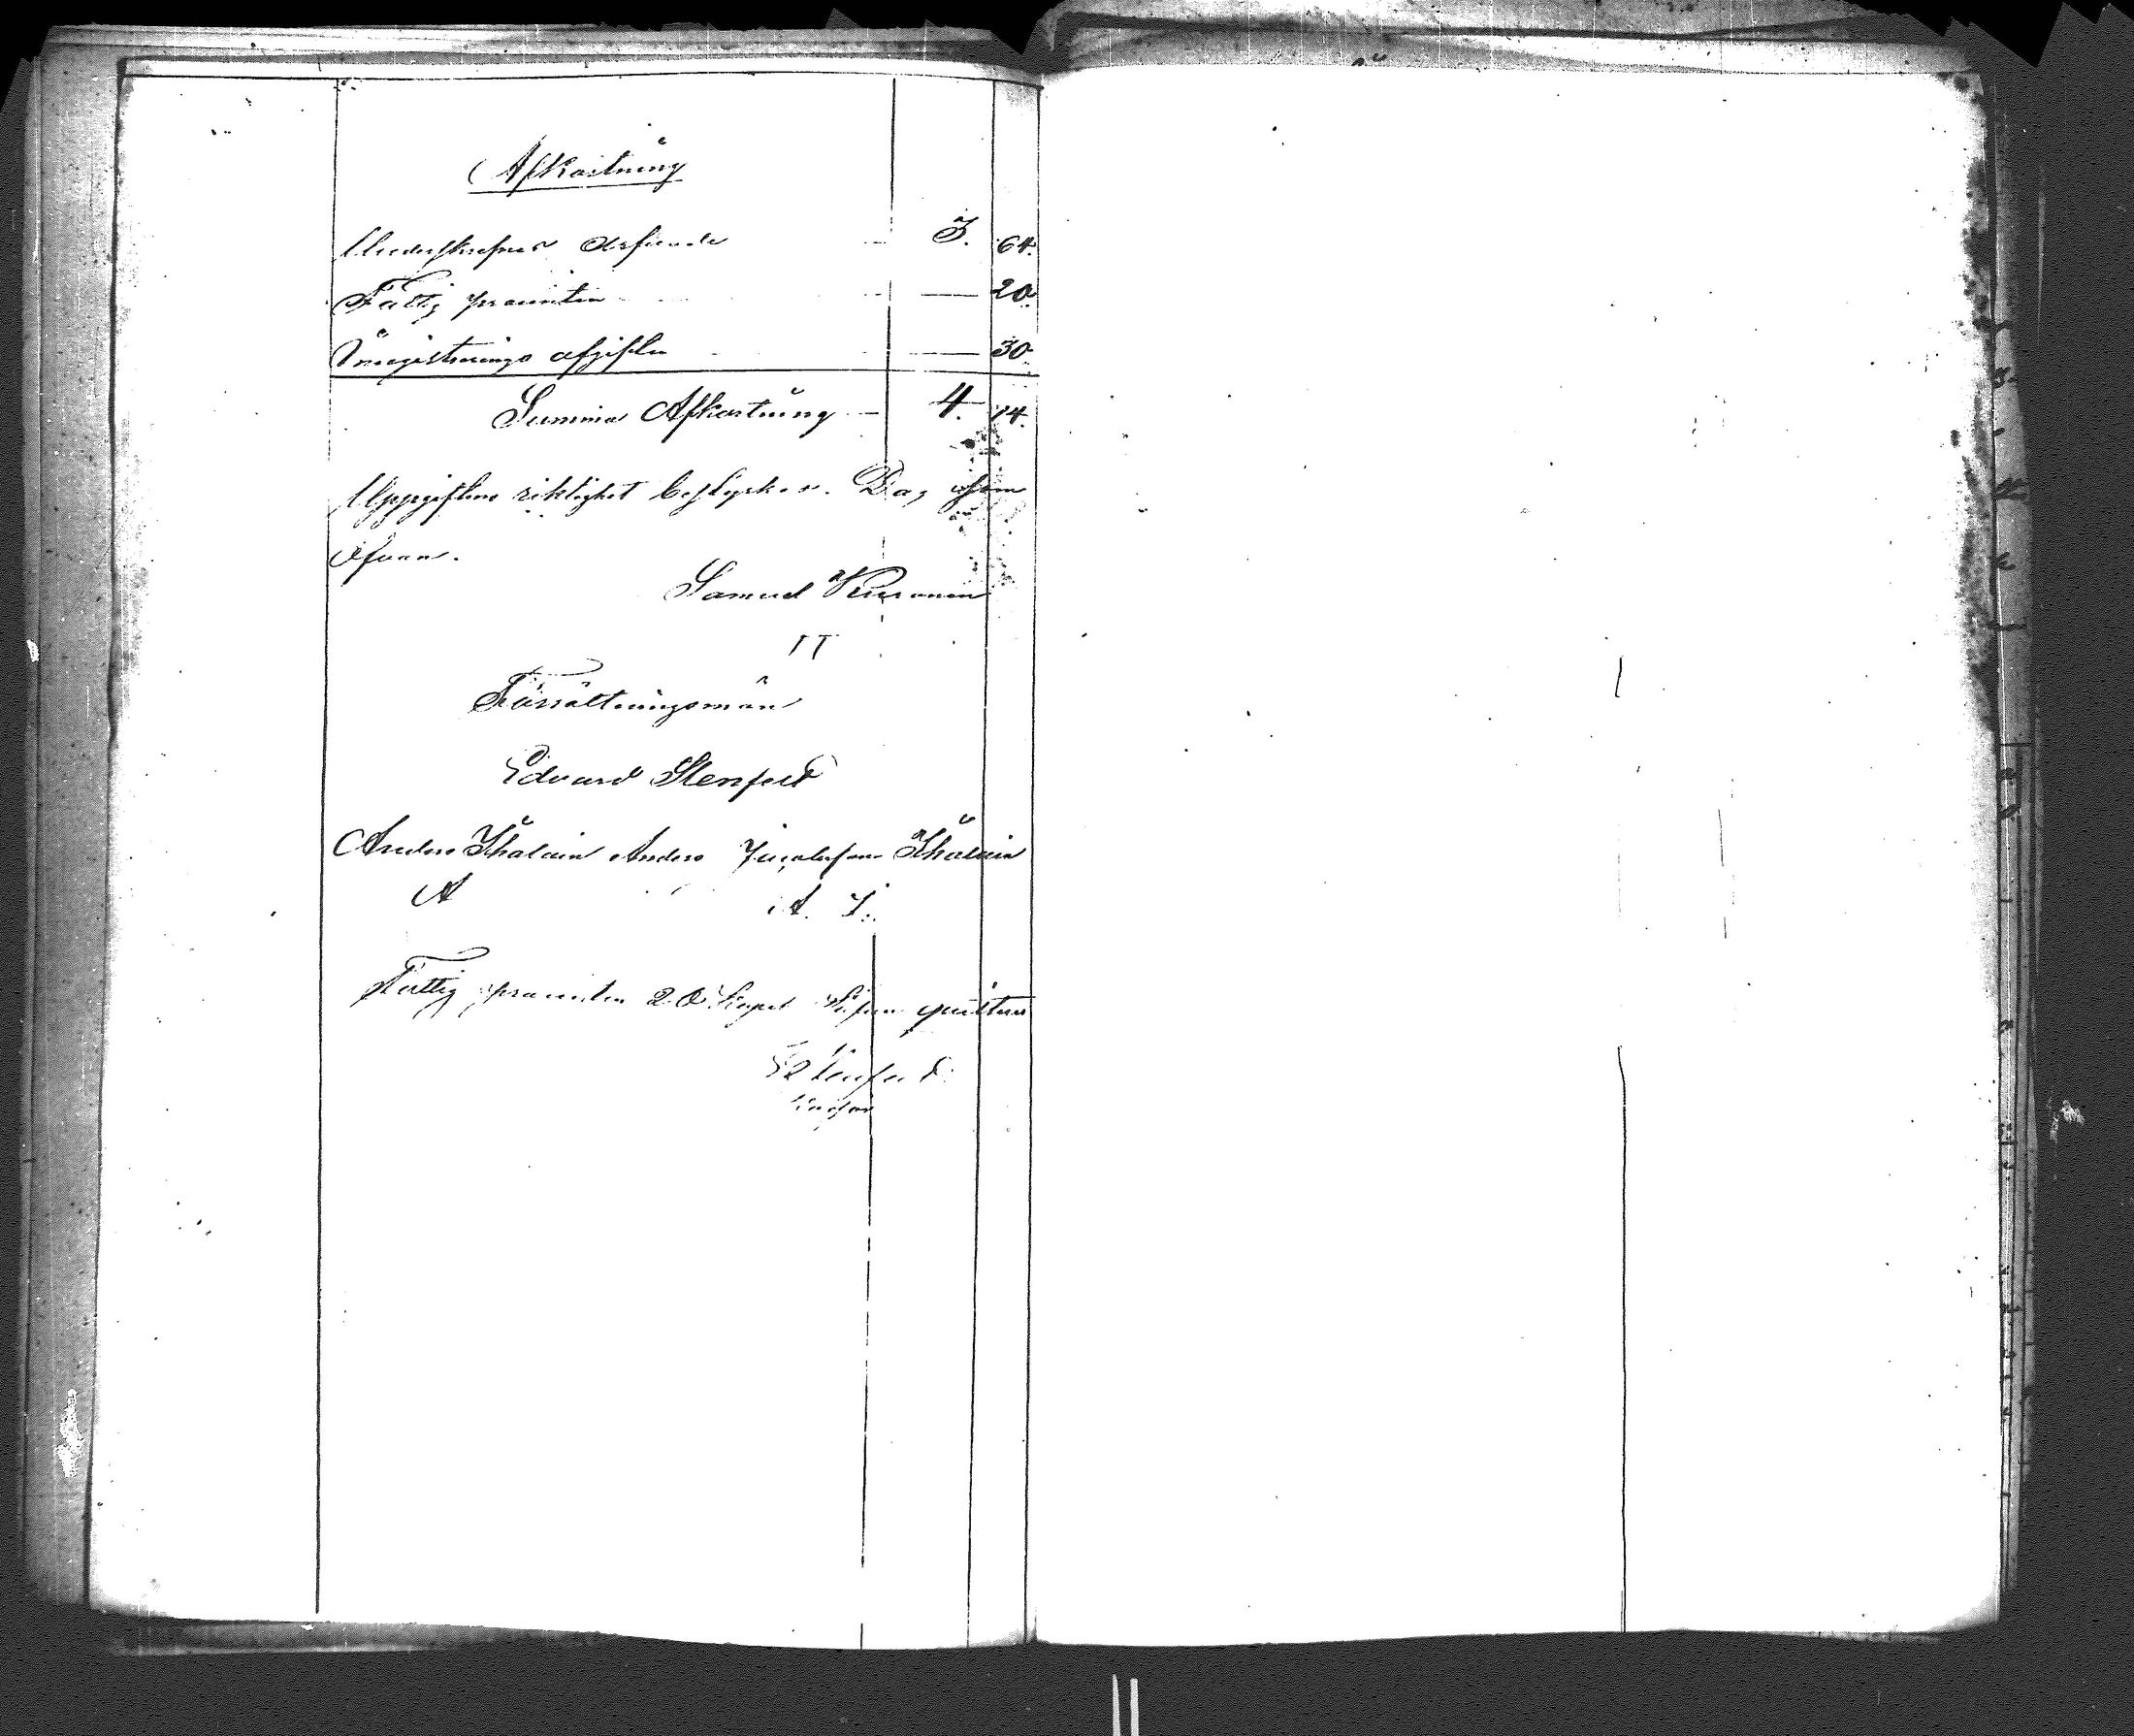 Afkortning
Underskrefne arfvode 3. 64.
Fattig procenten — 20.
Öfregistrerings afgiften — 30
Summa Afkortning — 4. 14.
Uppgiftens riktighet bestyrker. Dag som
ofvan.
Samuel
Förrättningsmän
Edvard Stenfelt
Anders Ihalain Anders Jacobsson Ihalain
A A. I.
Fattig procenten 20 kopek quitteras